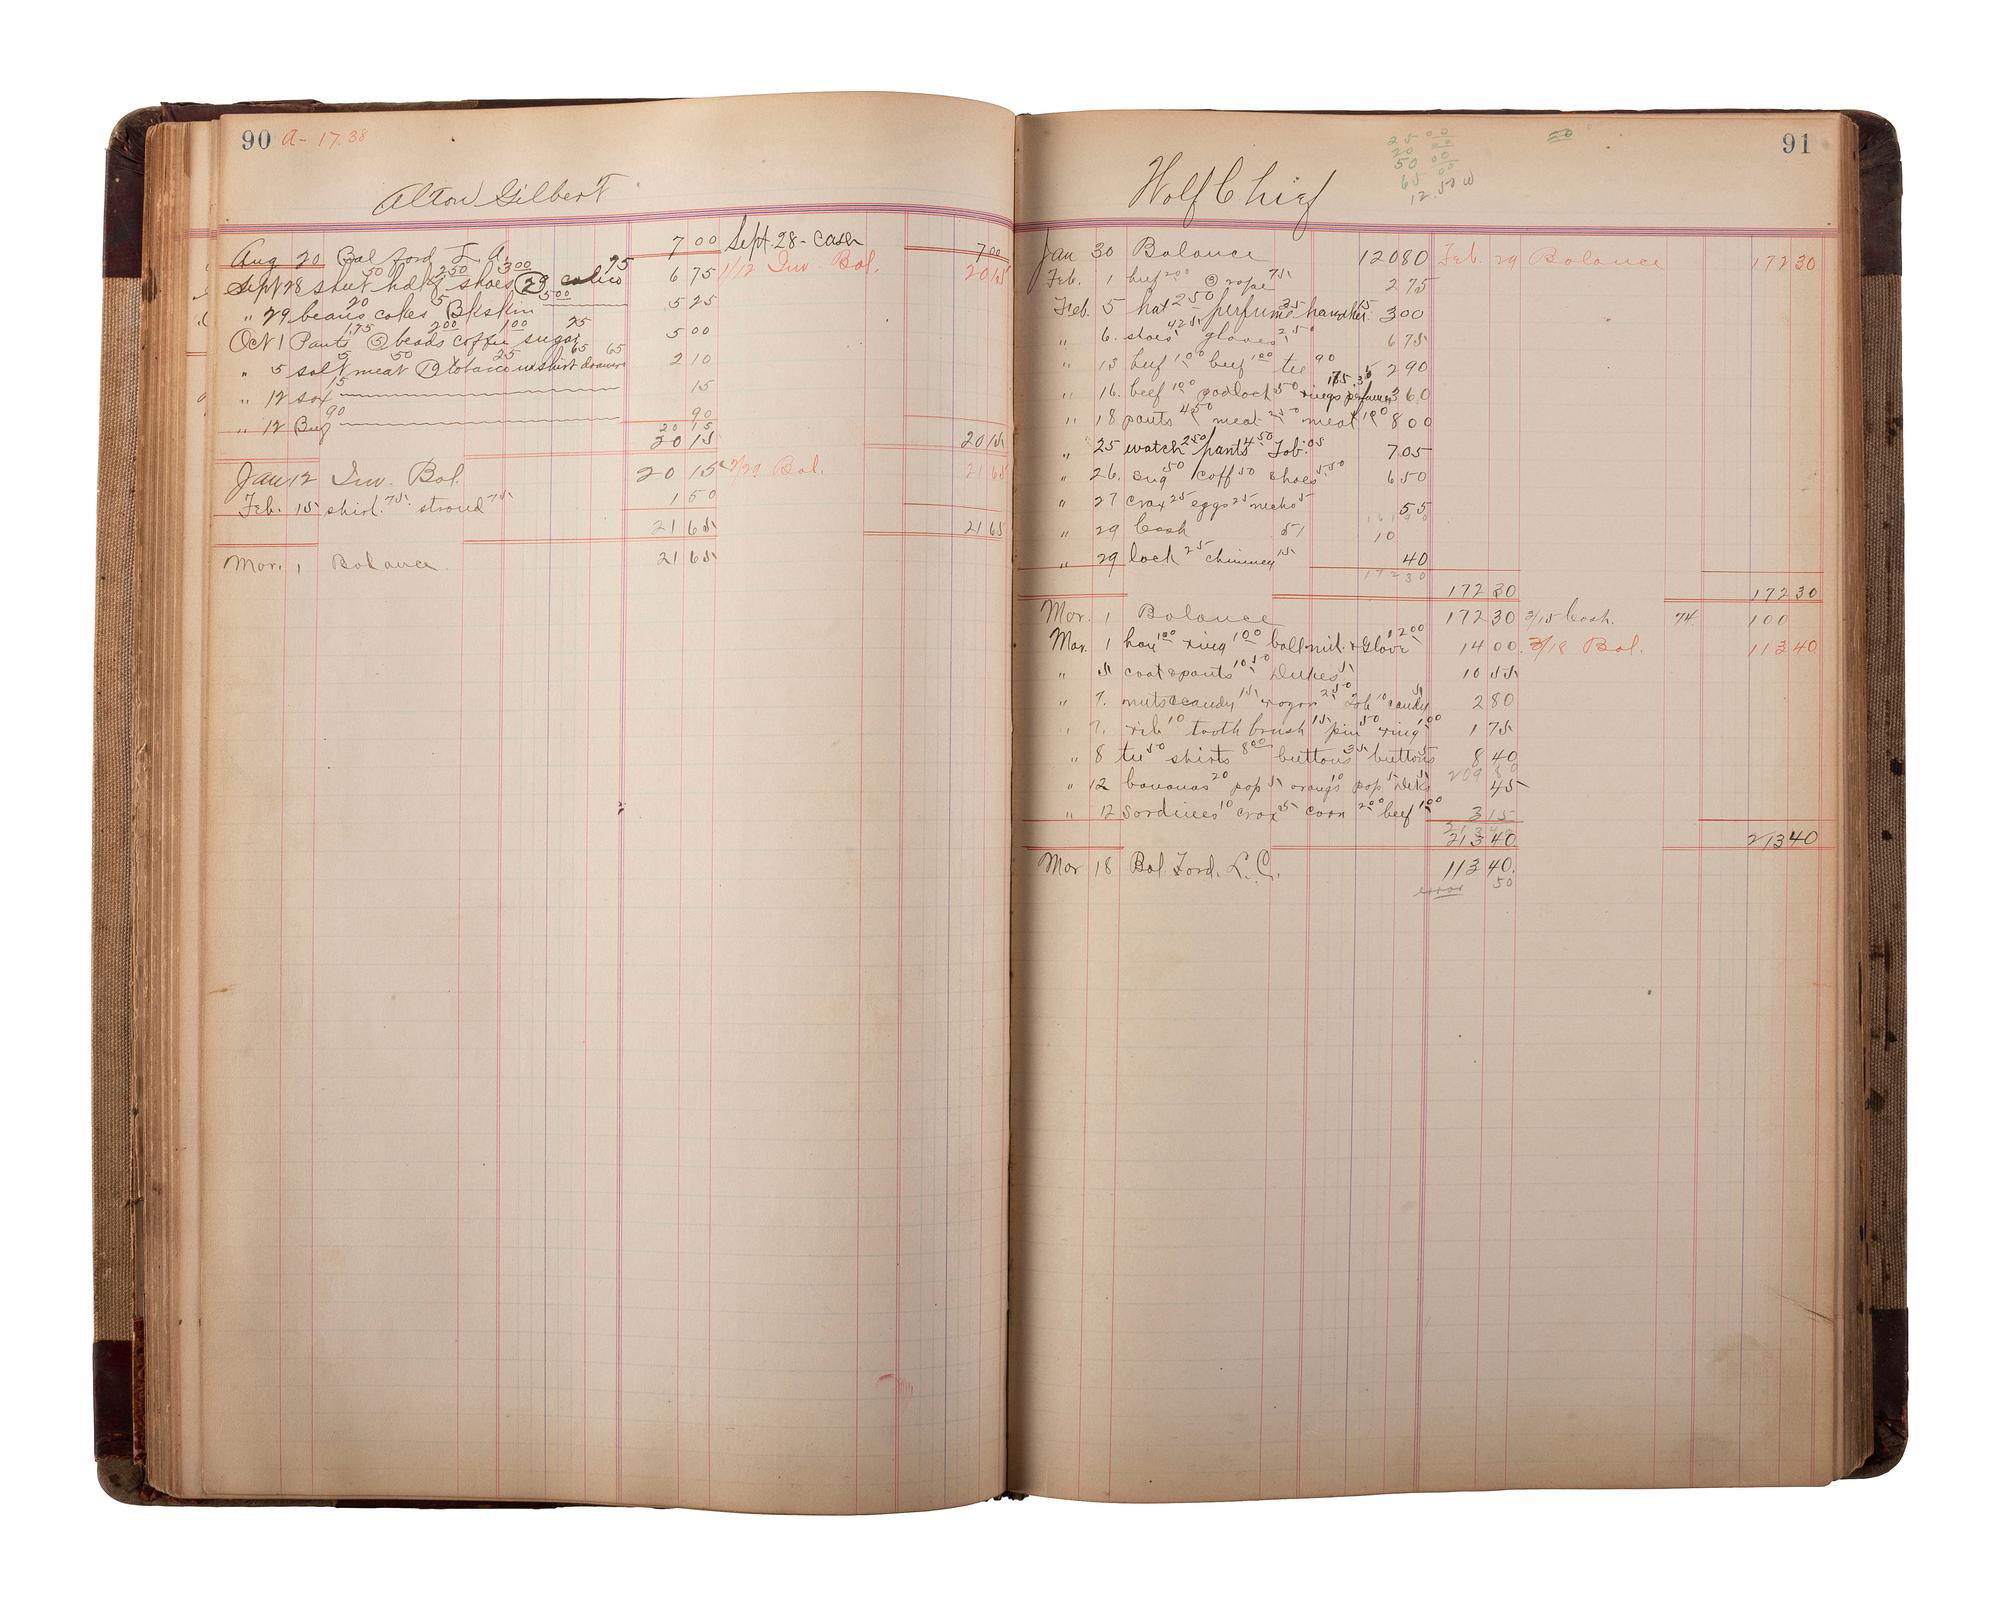 90 A- 17.38
Alton Gilbert
Aug 20 Bal ford L.A. 7 00 Sept. 28 - cash 7 00
Sept 28 sheet hdkf 50 250 shoes 3 00 (29) calico 75 6 75 1/12 Inv Bal. 20 15
" 29 beans 20 cakes 5 Bkskin 5 00 5 25
Oct 1 Pants 1.75 (5) beads 2 00 coffee 1 00 sugar 25 5 00
" 5 salt 5 meat 50 (19) tobacco 25 unshirt 65 drawers 65 2 10
" 12 sox 15 15
" 12 Beef 90 90
20 15
20 15 20 15
Jan 12 Inv. Bal. 20 15 2/29 Bal. 21 65
Feb. 15 shirt 75 stroud 75 1 50
21 65 21 65
Mar. 1 Balance 21 65
91
25 00
20 00
50 00
65 00
12.50
Wolf Chief
Jan 30 Balance 120 80 Feb. 29 Balance 172 30
Feb. 1 beef 2 00 (3) rope 75 2 75
Feb. 5 hat 2 50 perfume 35 handkr. 15 3 00
" 6. shoes 4 25 gloves 2 50 6 75
" 15 beef 1 00 beef 1 00 tie 90 2 90
" 16. beef 1 00 padlock 50 rings 1 75 perfume 35 3 60
" 18 pants 4 50 meat 2 50 meat 1 00 8 00
" 25 watch 2 50 pants 4 50 Tob. 05 7 05
" 26. sug 50 coff 50 shoes 5.50 6 50
" 27 crax 25 eggs 25 necho 5 55
" 29 Cash 51 10
" 29 lock 25 chimney 15 40
172 30
172 30 172 30
Mar. 1 Balance 172 30 3/15 Cash. 74 100
Mar. 1 1 00 ring 1 00 ball mit. & Glove 12 00 14 00 3/18 Bal. 113 40
" 5 coat & pants 10 50 Dukes 5 10 55
" 7. nuts & candy 15 razor 2 50 Tob 10 candy 5 2 80
" 7. rib 10 tooth brush 15 pin 50 ring 1 00 1 75
" 8 tie 50 shirts 8 00 buttons 35 buttons 5 8 40
209 80
" 12 bananas 20 pop 5 orangs 10 pop 5 Duks 5 45
" 12 sardines 10 crax 25 corn 2 00 beef 1 00 3 15
213 40
213 40 213 40
Mar 18 Bal. Ford. L. C. 113 40.
error 50